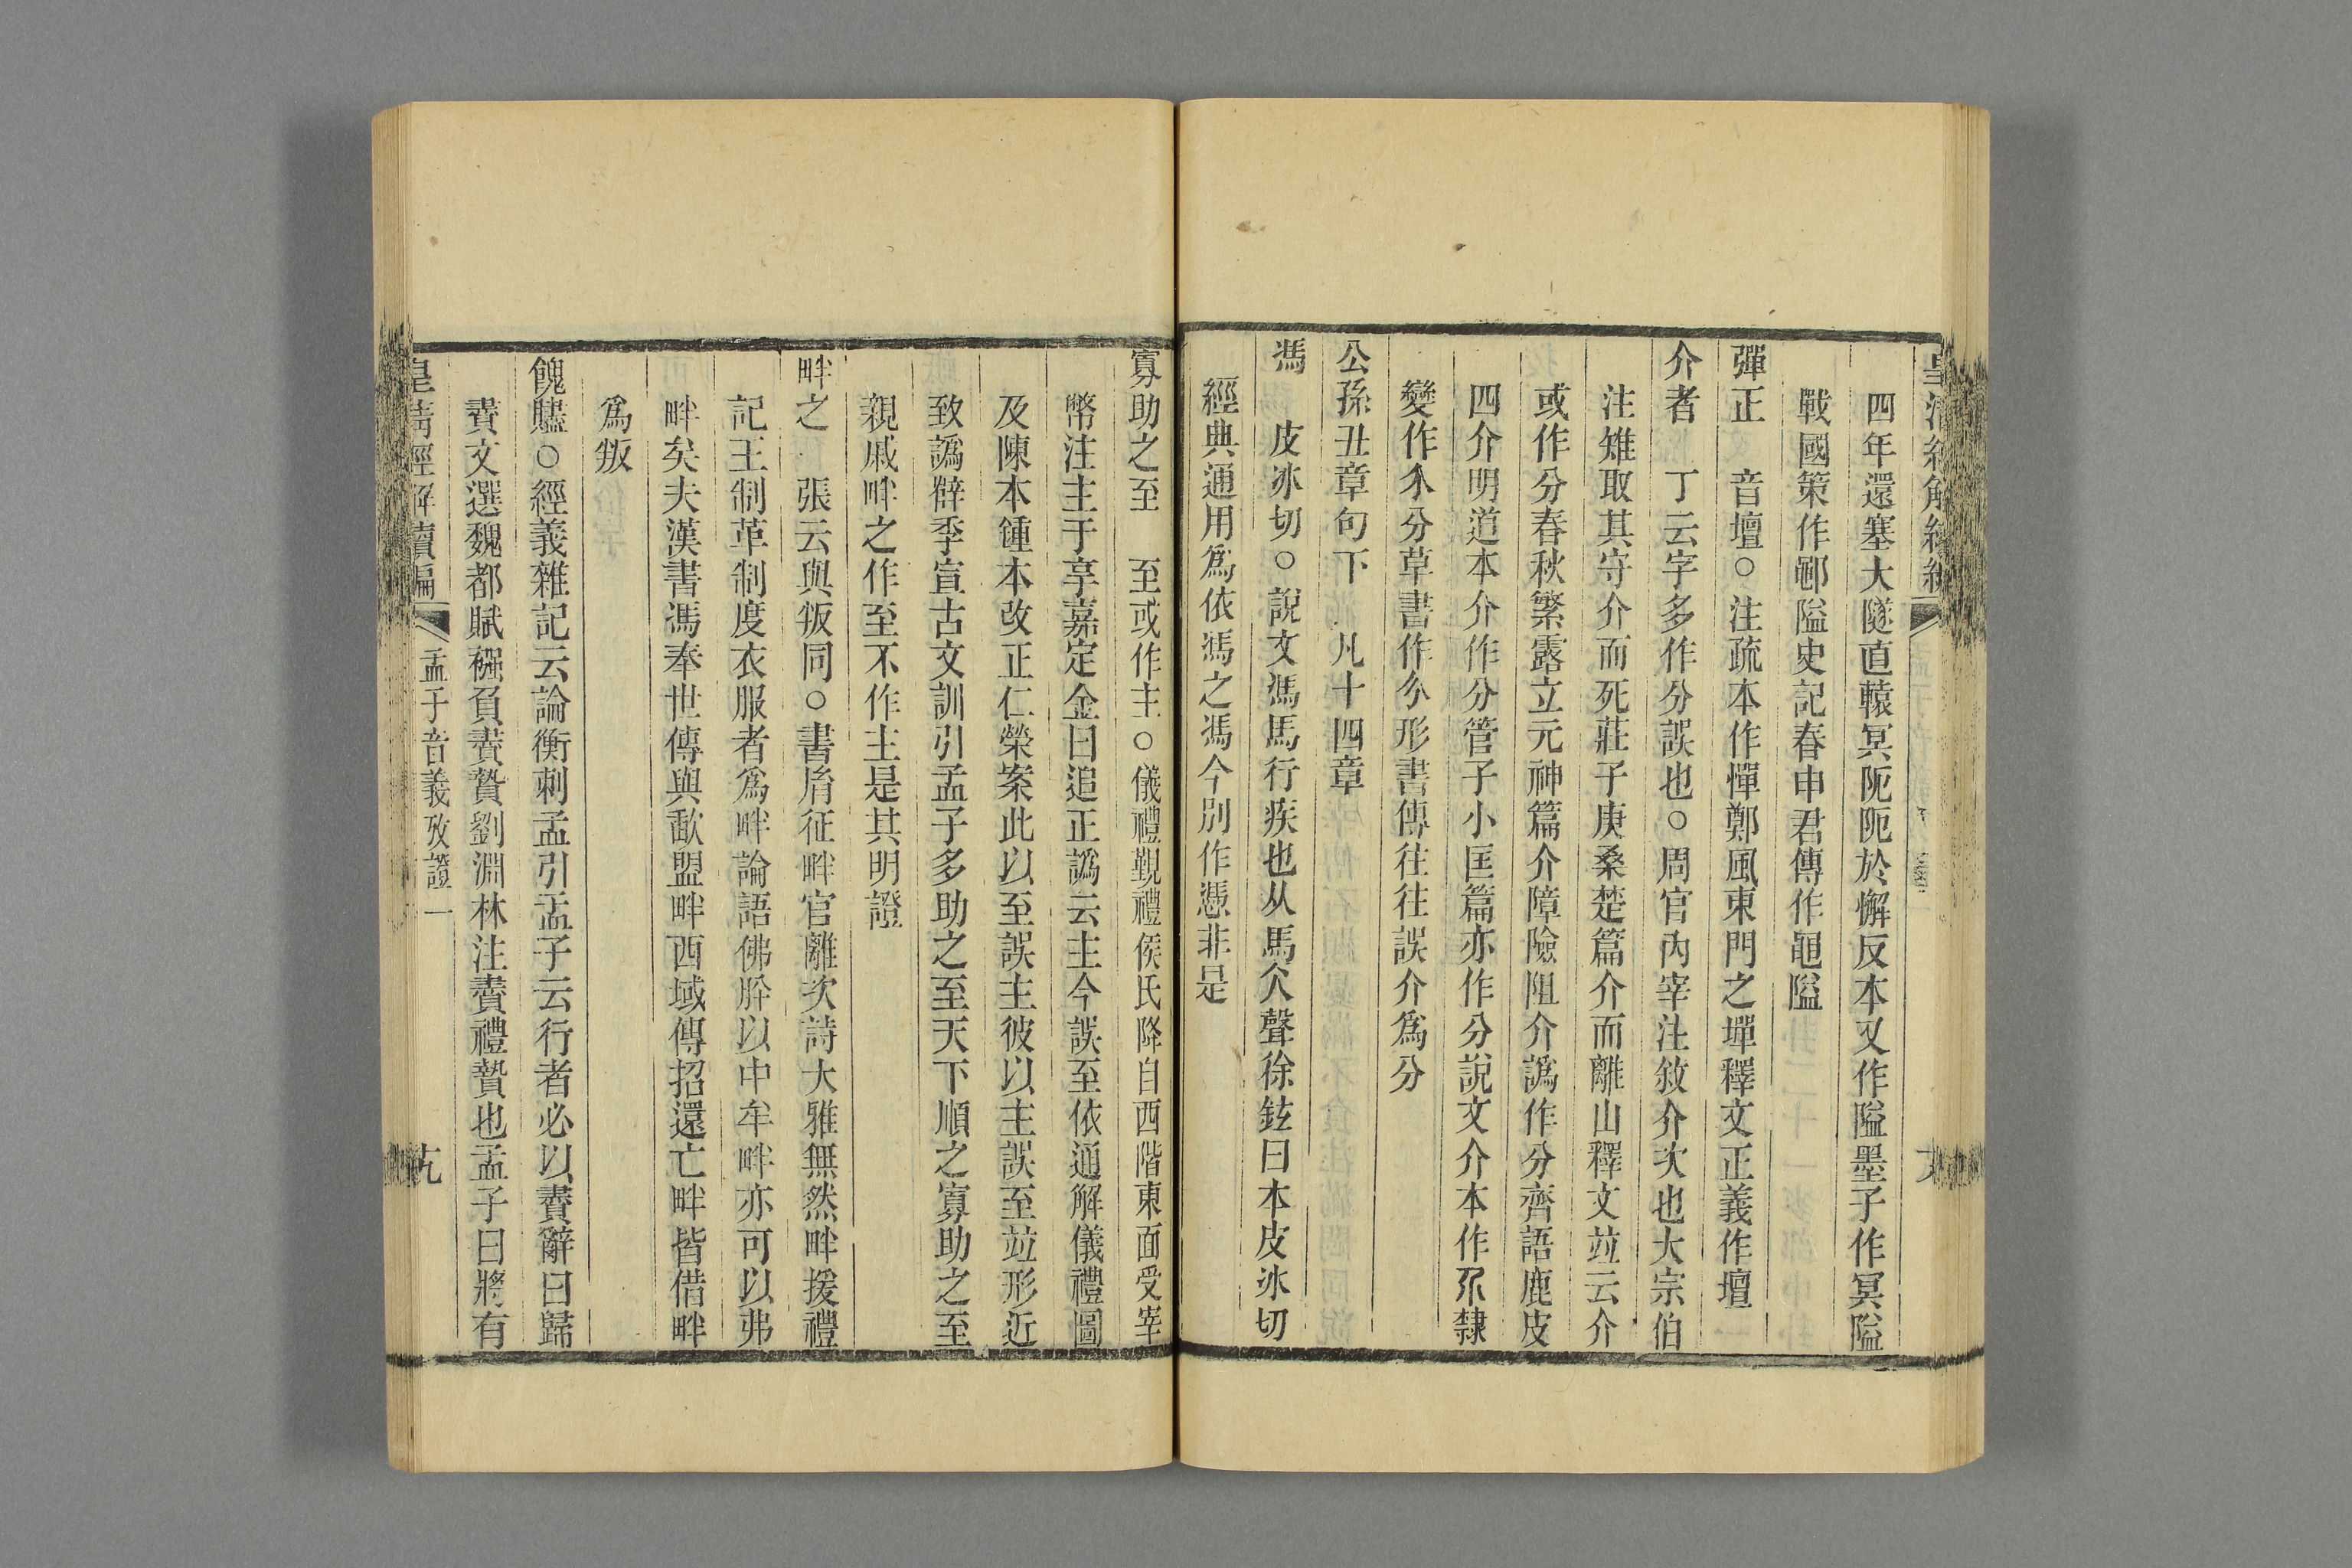 四年還塞大隧直轅冥阨阨於懈反本又作隘墨子作冥隘
戰國策作鄳隘史記春申君傳作黽隘
彈正　音壇○注疏本作憚鄭風東門之墠釋文正義作壇
介者　丁云字多作分誤也○周官內宰注敘介次也大宗伯
注雉取其守介而死莊子庚桑楚篇介而離山釋文竝云介
或作分春秋繁露立元神篇介障險阻介譌作分齊語鹿皮
四介明道本介作分管子小匡篇亦作分說文介本作尒隸
變作介分草書作分形書傳往往誤介爲分
公孫丑章句下　凡十四章
馮　皮冰切○說文馮馬行疾也从馬仌聲徐鉉曰本皮冰切
經典通用爲依馮之馮今別作憑非是
寡助之至　至或作主○儀禮覲禮侯氏降自西階東面受宰
幣注主于享嘉定金曰追正譌云主今誤至依通解儀禮圖
及陳本鍾本改正仁榮案此以至誤主彼以主誤至竝形近
致譌辥季宣古文訓引孟子多助之至天下順之寡助之至
親戚畔之作至不作主是其明證
畔之　張云與叛同○書胤征畔官離次詩大雅無然畔援禮
記王制革制度衣服者爲畔論語佛肸以中牟畔亦可以弗
畔矣夫漢書馮奉世傳與歃盟畔西域傳招還亡畔皆借畔
爲叛
餽贐○經義雜記云論衡刺孟引孟子云行者必以賮辭曰歸
賮文選魏都賦襁負賮贄劉淵林注賮禮贄也孟子曰將有
皇清經解續編　孟子音義攷證一